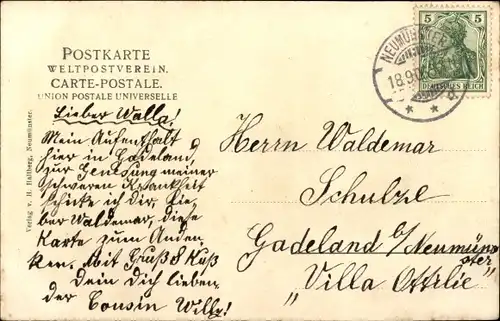 POSTKARTE
WELTPOSTVEREIN.
CARTE-POSTALE.
UNION POSTALE UNIVERSELLE
5 5
DEUTSCHES REICH
NEUMÜNSTER
18.9.0
* *
Verlag v. H. Hallberg, Neumünster.
Lieber Walla!
Mein Aufenthalt
hier in Gadeland,
zur Genesung meiner
schweren Krankheit
schicke ich dir, lie-
ber Waldemar, diese
Karte zum Anden
ken. Mit Gruß & Kuß
Dein dich lieben
der Cousin Willy!
Herrn Waldemar
Schulze
Gadeland b/Neumün
ster
"Villa Ottilie"